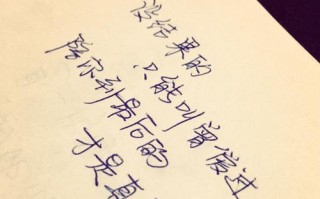 没结果的
只能叫曾爱过
陪你到最后的
才是真